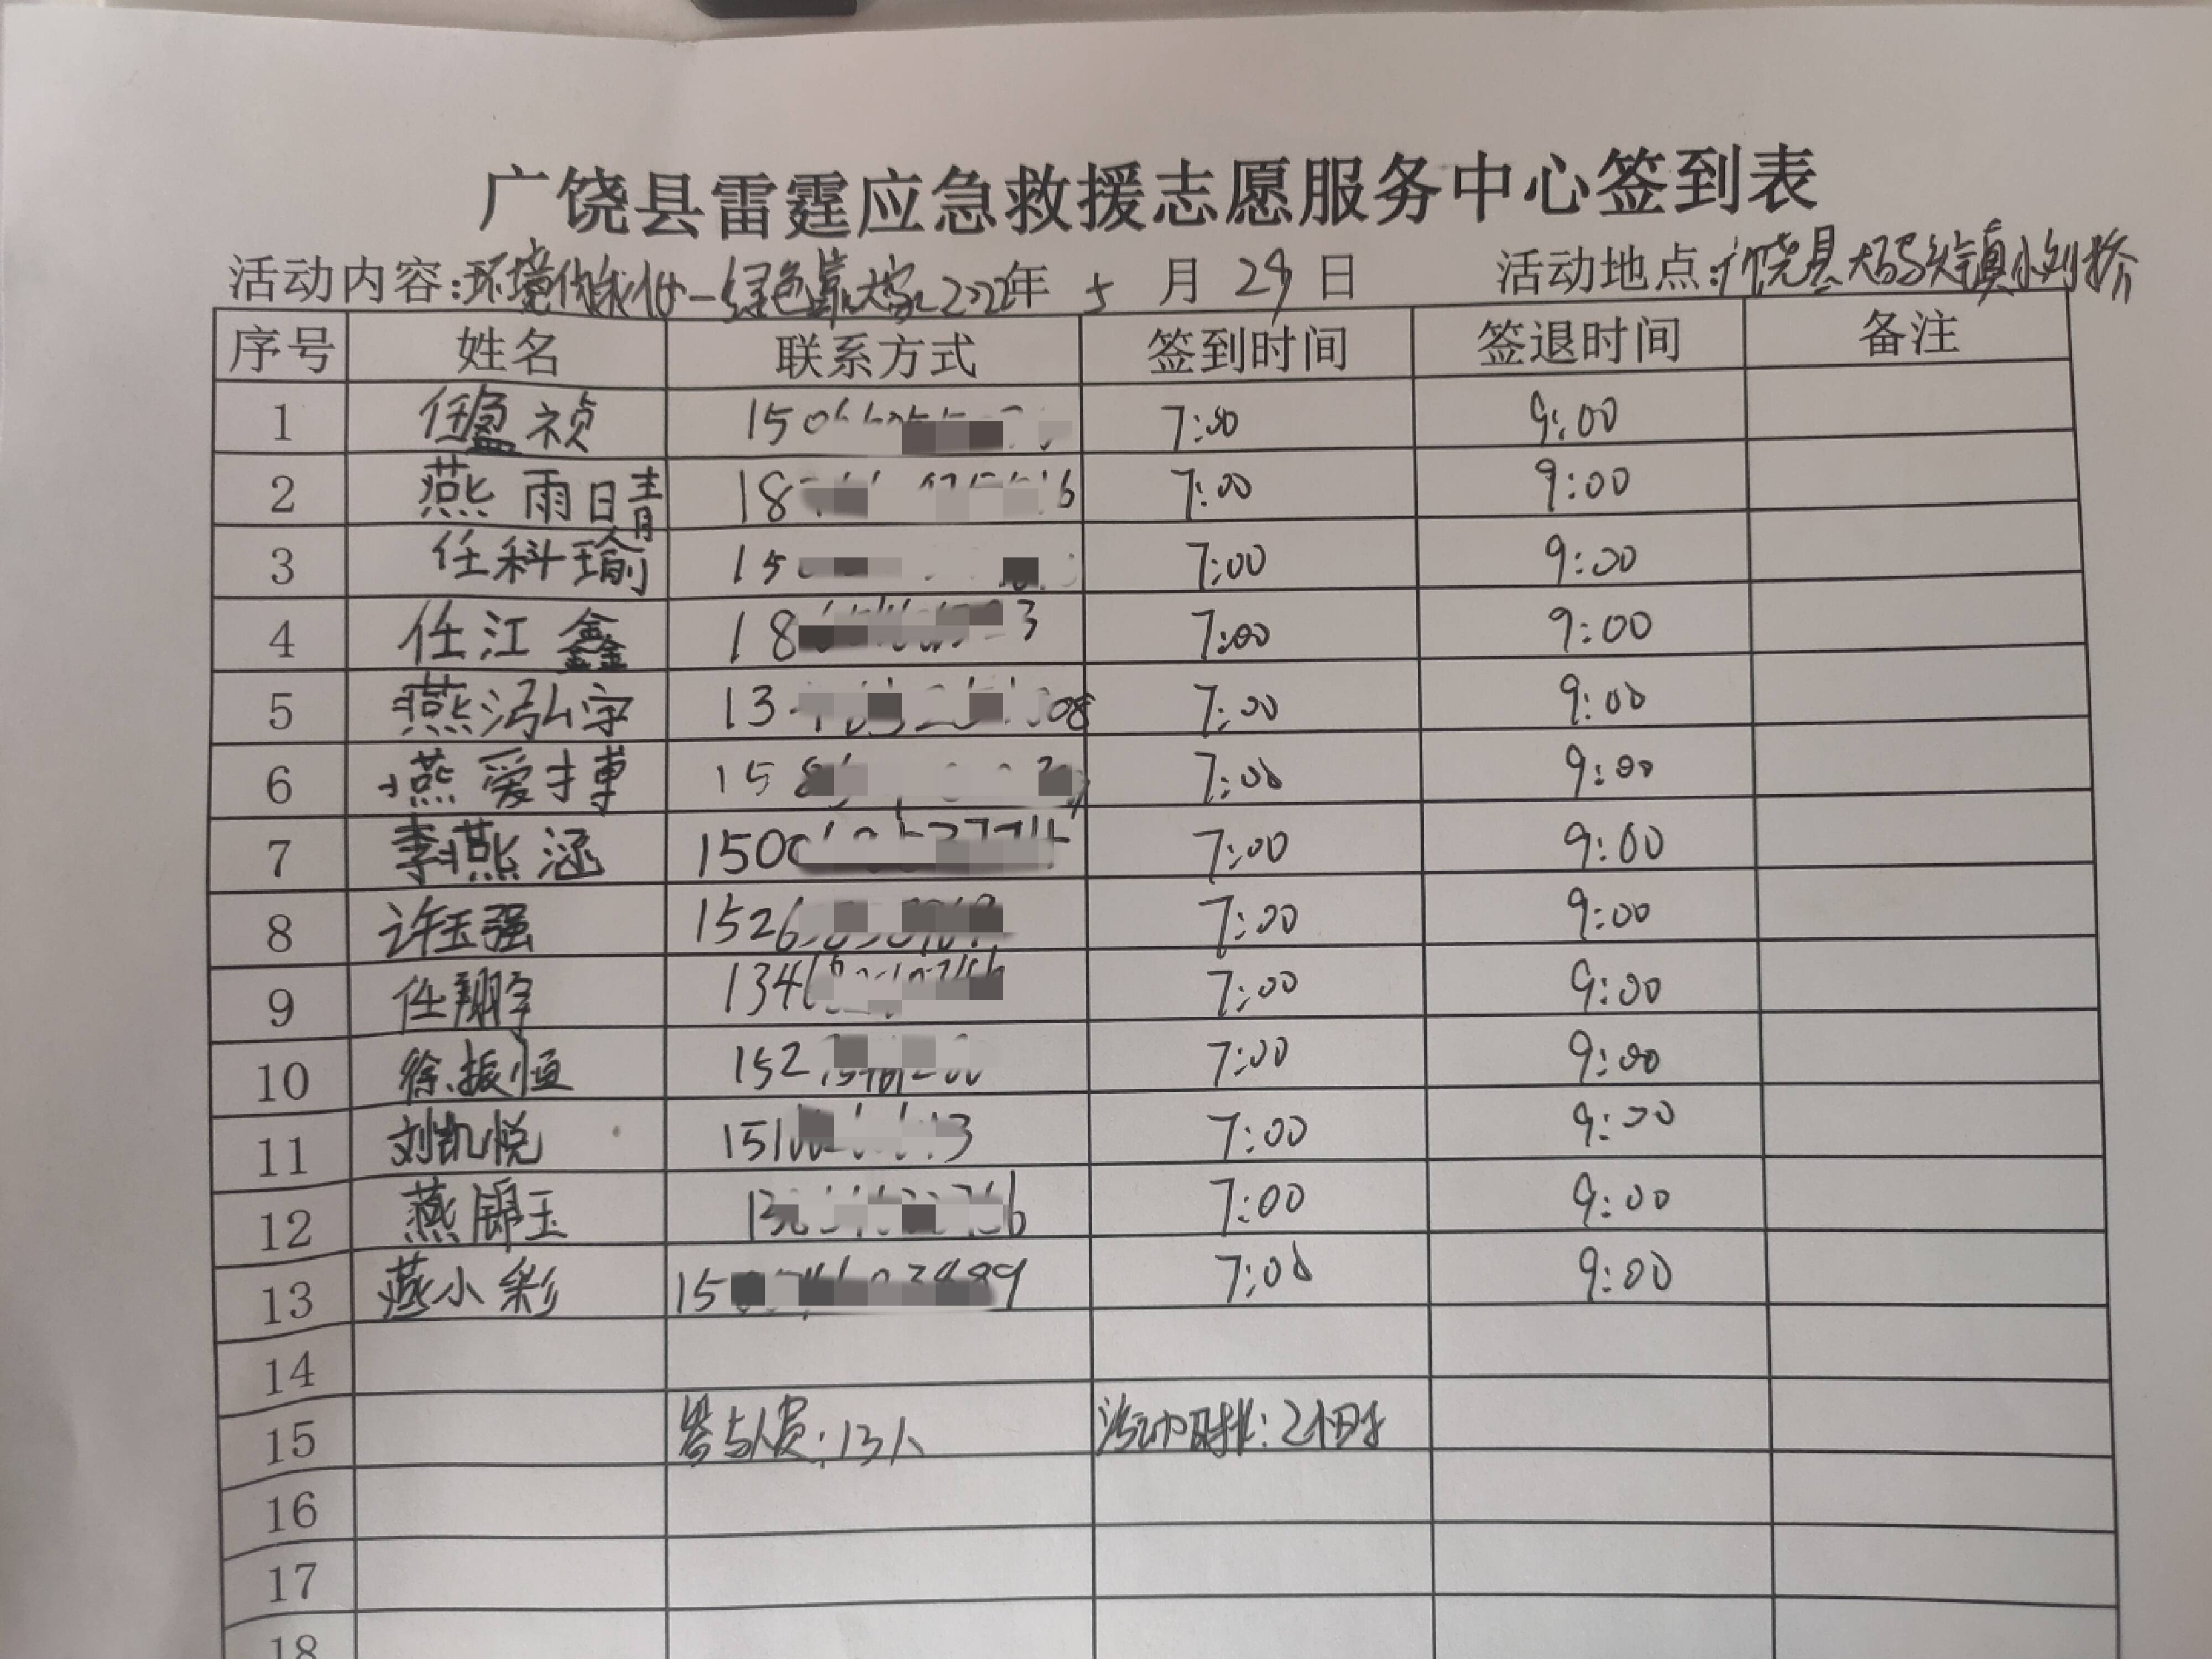 广饶县雷霆应急救援志愿服务中心签到表
活动内容:环境你我他一绿色靠大家 2022年 5 月 29 日 活动地点:广饶县大码头镇小刘桥
序号 姓名 联系方式 签到时间 签退时间 备注
1 任盈祯 150 7:00 9:00
2 燕雨晴 18 6 7:00 9:00
3 任科瑜 15 7:00 9:00
4 任江鑫 18 3 7:00 9:00
5 燕泓宇 13 08 7:00 9:00
6 燕爱博 15 7:00 9:00
7 李燕涵 150 7:00 9:00
8 许玉强 1526 7:00 9:00
9 任翔宇 134 7:00 9:00
10 徐振恒 152 7:00 9:00
11 刘凯悦 151 3 7:00 9:00
12 燕锦玉 13 6 7:00 9:00
13 燕小彩 15 9 7:00 9:00
14
15 参与人员:13人 活动时长:2个小时
16
17
18